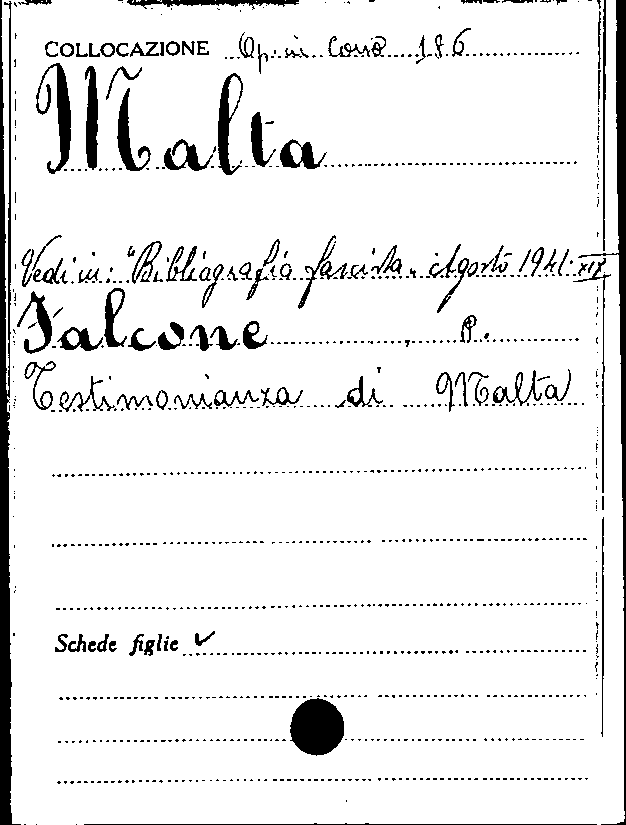 COLLOCAZIONE Op. in Corso 186
Malta
Vedi in: "Bibliografia fascista" Agosto 1941-XIX
Falcone, P.
Testimonianza di Malta
Schede figlie ✓